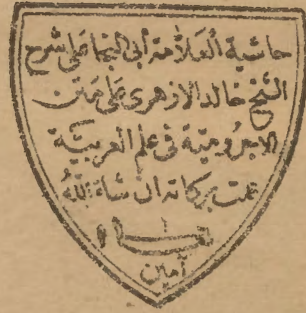 حاشية العلامة أبي النجا على شرح
الشيخ خالد الازهرى على متن
الاجرومية فى علم العربية
عمت بركاته ان شاء الله
تعالى
آمين